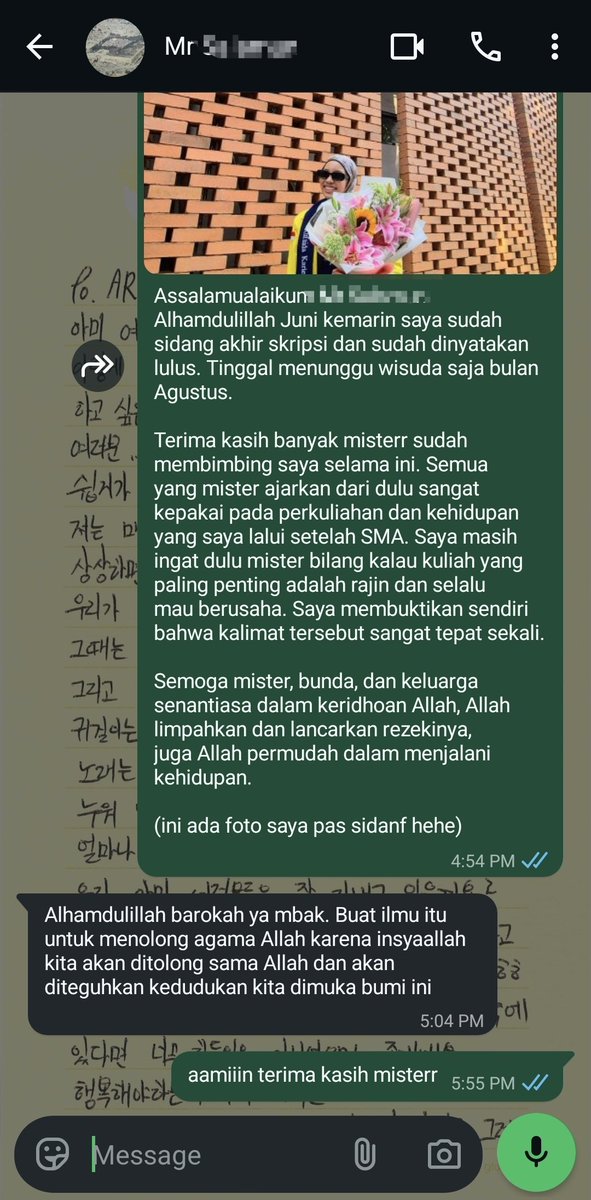 Mr
Assalamualaikum
Alhamdulillah Juni kemarin saya sudah
sidang akhir skripsi dan sudah dinyatakan
lulus. Tinggal menunggu wisuda saja bulan
Agustus.
Terima kasih banyak misterr sudah
membimbing saya selama ini. Semua
yang mister ajarkan dari dulu sangat
kepakai pada perkuliahan dan kehidupan
yang saya lalui setelah SMA. Saya masih
ingat dulu mister bilang kalau kuliah yang
paling penting adalah rajin dan selalu
mau berusaha. Saya membuktikan sendiri
bahwa kalimat tersebut sangat tepat sekali.
Semoga mister, bunda, dan keluarga
senantiasa dalam keridhoan Allah, Allah
limpahkan dan lancarkan rezekinya,
juga Allah permudah dalam menjalani
kehidupan.
(ini ada foto saya pas sidanf hehe)
4:54 PM
Alhamdulillah barokah ya mbak. Buat ilmu itu
untuk menolong agama Allah karena insyaallah
kita akan ditolong sama Allah dan akan
diteguhkan kedudukan kita dimuka bumi ini
5:04 PM
aamiiin terima kasih misterr
5:55 PM
Message
아미 여
하고 싶은
여러분
쉽지가
저는
상상하면
우리가
그때는
그리고
귀걸이는
노래는
누워
얼마나
있다면
행복해야